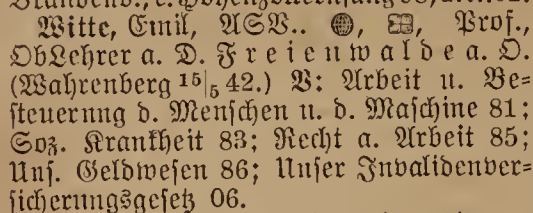 Witte, Emil, ASV.. Prof.,
ObLehrer a. D. Freienwalde a. O.
(Wahrenberg 15|5 42.) V: Arbeit u. Be-
steuernng d. Menschen u. d. Maschine 81;
Soz. Krankheit 83; Recht a. Arbeit 85;
Uns. Geldwesen 86; Unser Invalidenver-
sicherungsgesetz 06.